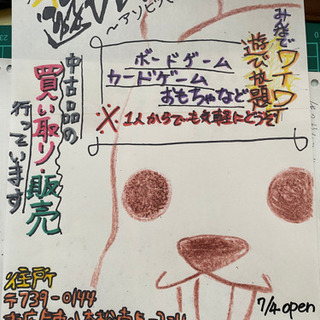 〜アソビ
みなでワイワイ
遊び放題
ボードゲーム
カードゲーム
おもちゃなど
※1人からでも気軽にどうぞ
中古品の
買い取り・販売
行っています
住所
〒739-0144
7/4 open